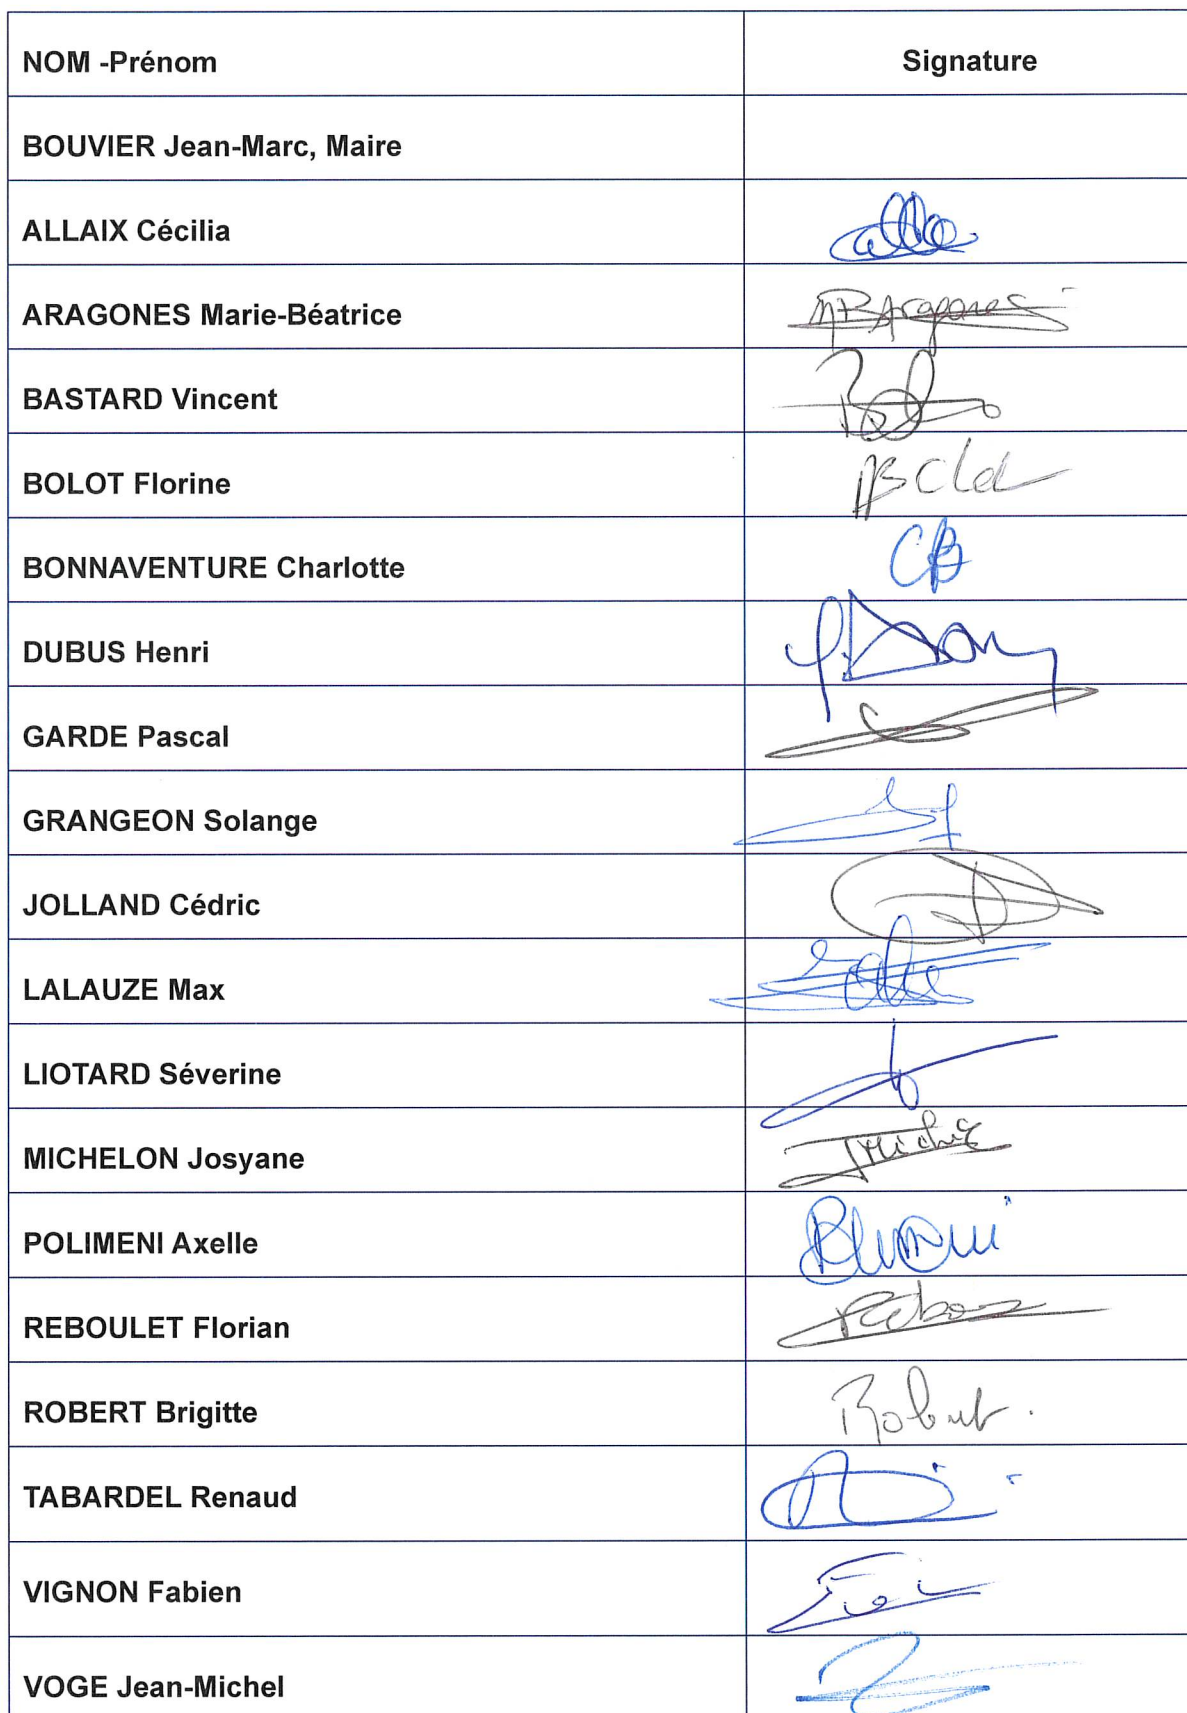 NOM -Prénom Signature
BOUVIER Jean-Marc, Maire
ALLAIX Cécilia
ARAGONES Marie-Béatrice MBAragones
BASTARD Vincent
BOLOT Florine
BONNAVENTURE Charlotte CB
DUBUS Henri
GARDE Pascal
GRANGEON Solange
JOLLAND Cédric
LALAUZE Max
LIOTARD Séverine
MICHELON Josyane
POLIMENI Axelle
REBOULET Florian
ROBERT Brigitte Robert.
TABARDEL Renaud
VIGNON Fabien
VOGE Jean-Michel